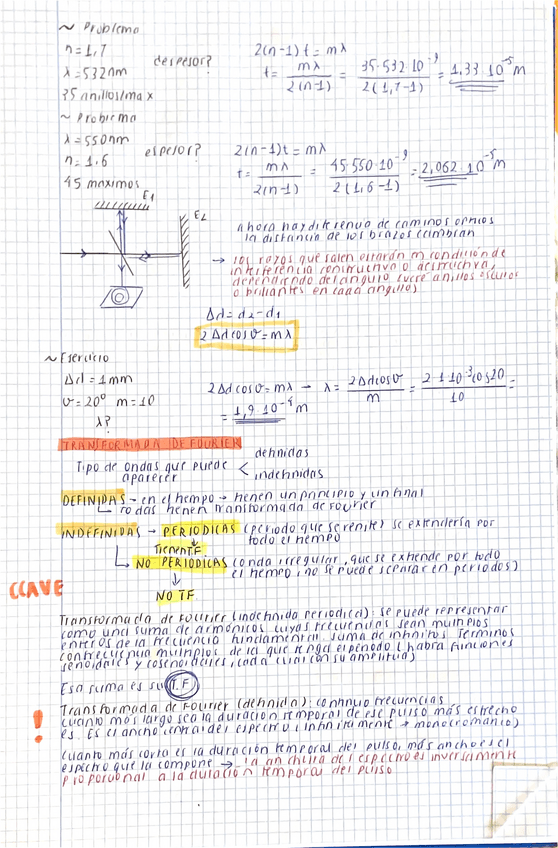 ~ Problema
n = 1,7
λ = 532nm
35 anillos/max
d espesor?
2(n-1) t = mλ
t = mλ / 2(n-1) = 35·532·10⁻⁹ / 2(1,7-1) = 1,33 10⁻⁵ m
~ Problema
λ = 550nm
n = 1,6
45 maximos
espesor?
2(n-1)t = mλ
t = mλ / 2(n-1) = 45·550·10⁻⁹ / 2(1,6-1) = 2,062 10⁻⁵ m
E1
E2
ahora hay diferencia de caminos
la distancia de los brazos
→ los rayos que salen estarán en condición de
interferencia constructiva o destructiva,
dependiendo del ángulo
o brillantes en cada angulo)
Δd = d2 - d1
2Δd cosθ = mλ
~ Ejercicio
Δd = 1mm
θ = 20° m = 10
λ?
2Δd cosθ = mλ → λ = 2Δd cosθ / m = 2 1·10⁻³ cos20 / 10 =
= 1,9 10⁻⁴ m
TRANSFORMADA DE FOURIER
Tipo de ondas que puede
aparecer
definidas
indefinidas
DEFINIDAS → en el tiempo → tienen un principio y un final
todas tienen transformada de Fourier
INDEFINIDAS → PERIODICAS (periodo que se repite) se extendería por
todo el tiempo
Tienen TF
NO PERIODICAS (onda irregular, que se extiende por todo
el tiempo, no se puede separar en periodos)
↓
NO TF
CLAVE
Transformada de Fourier (indefinida periodica): se puede representar
como una suma de armónicos cuyas frecuencias sean multiplos
enteros de la frecuencia fundamental. Suma de infinitos terminos
con frecuencia multiplos de la que tenga el periodo (habrá funciones
senoidales y cosenoidales, cada cual con su amplitud)
Esa suma es su T.F
! Transformada de Fourier (definida): continuo frecuencias
cuanto más largo sea la duración temporal de ese pulso más estrecho
es. Es el ancho central del espectro (infinitamente → monocromatico)
cuanto más corta es la duración temporal del pulso, más ancho es el
espectro que la compone → la anchura del espectro es inversamente
proporcional a la duración temporal del pulso